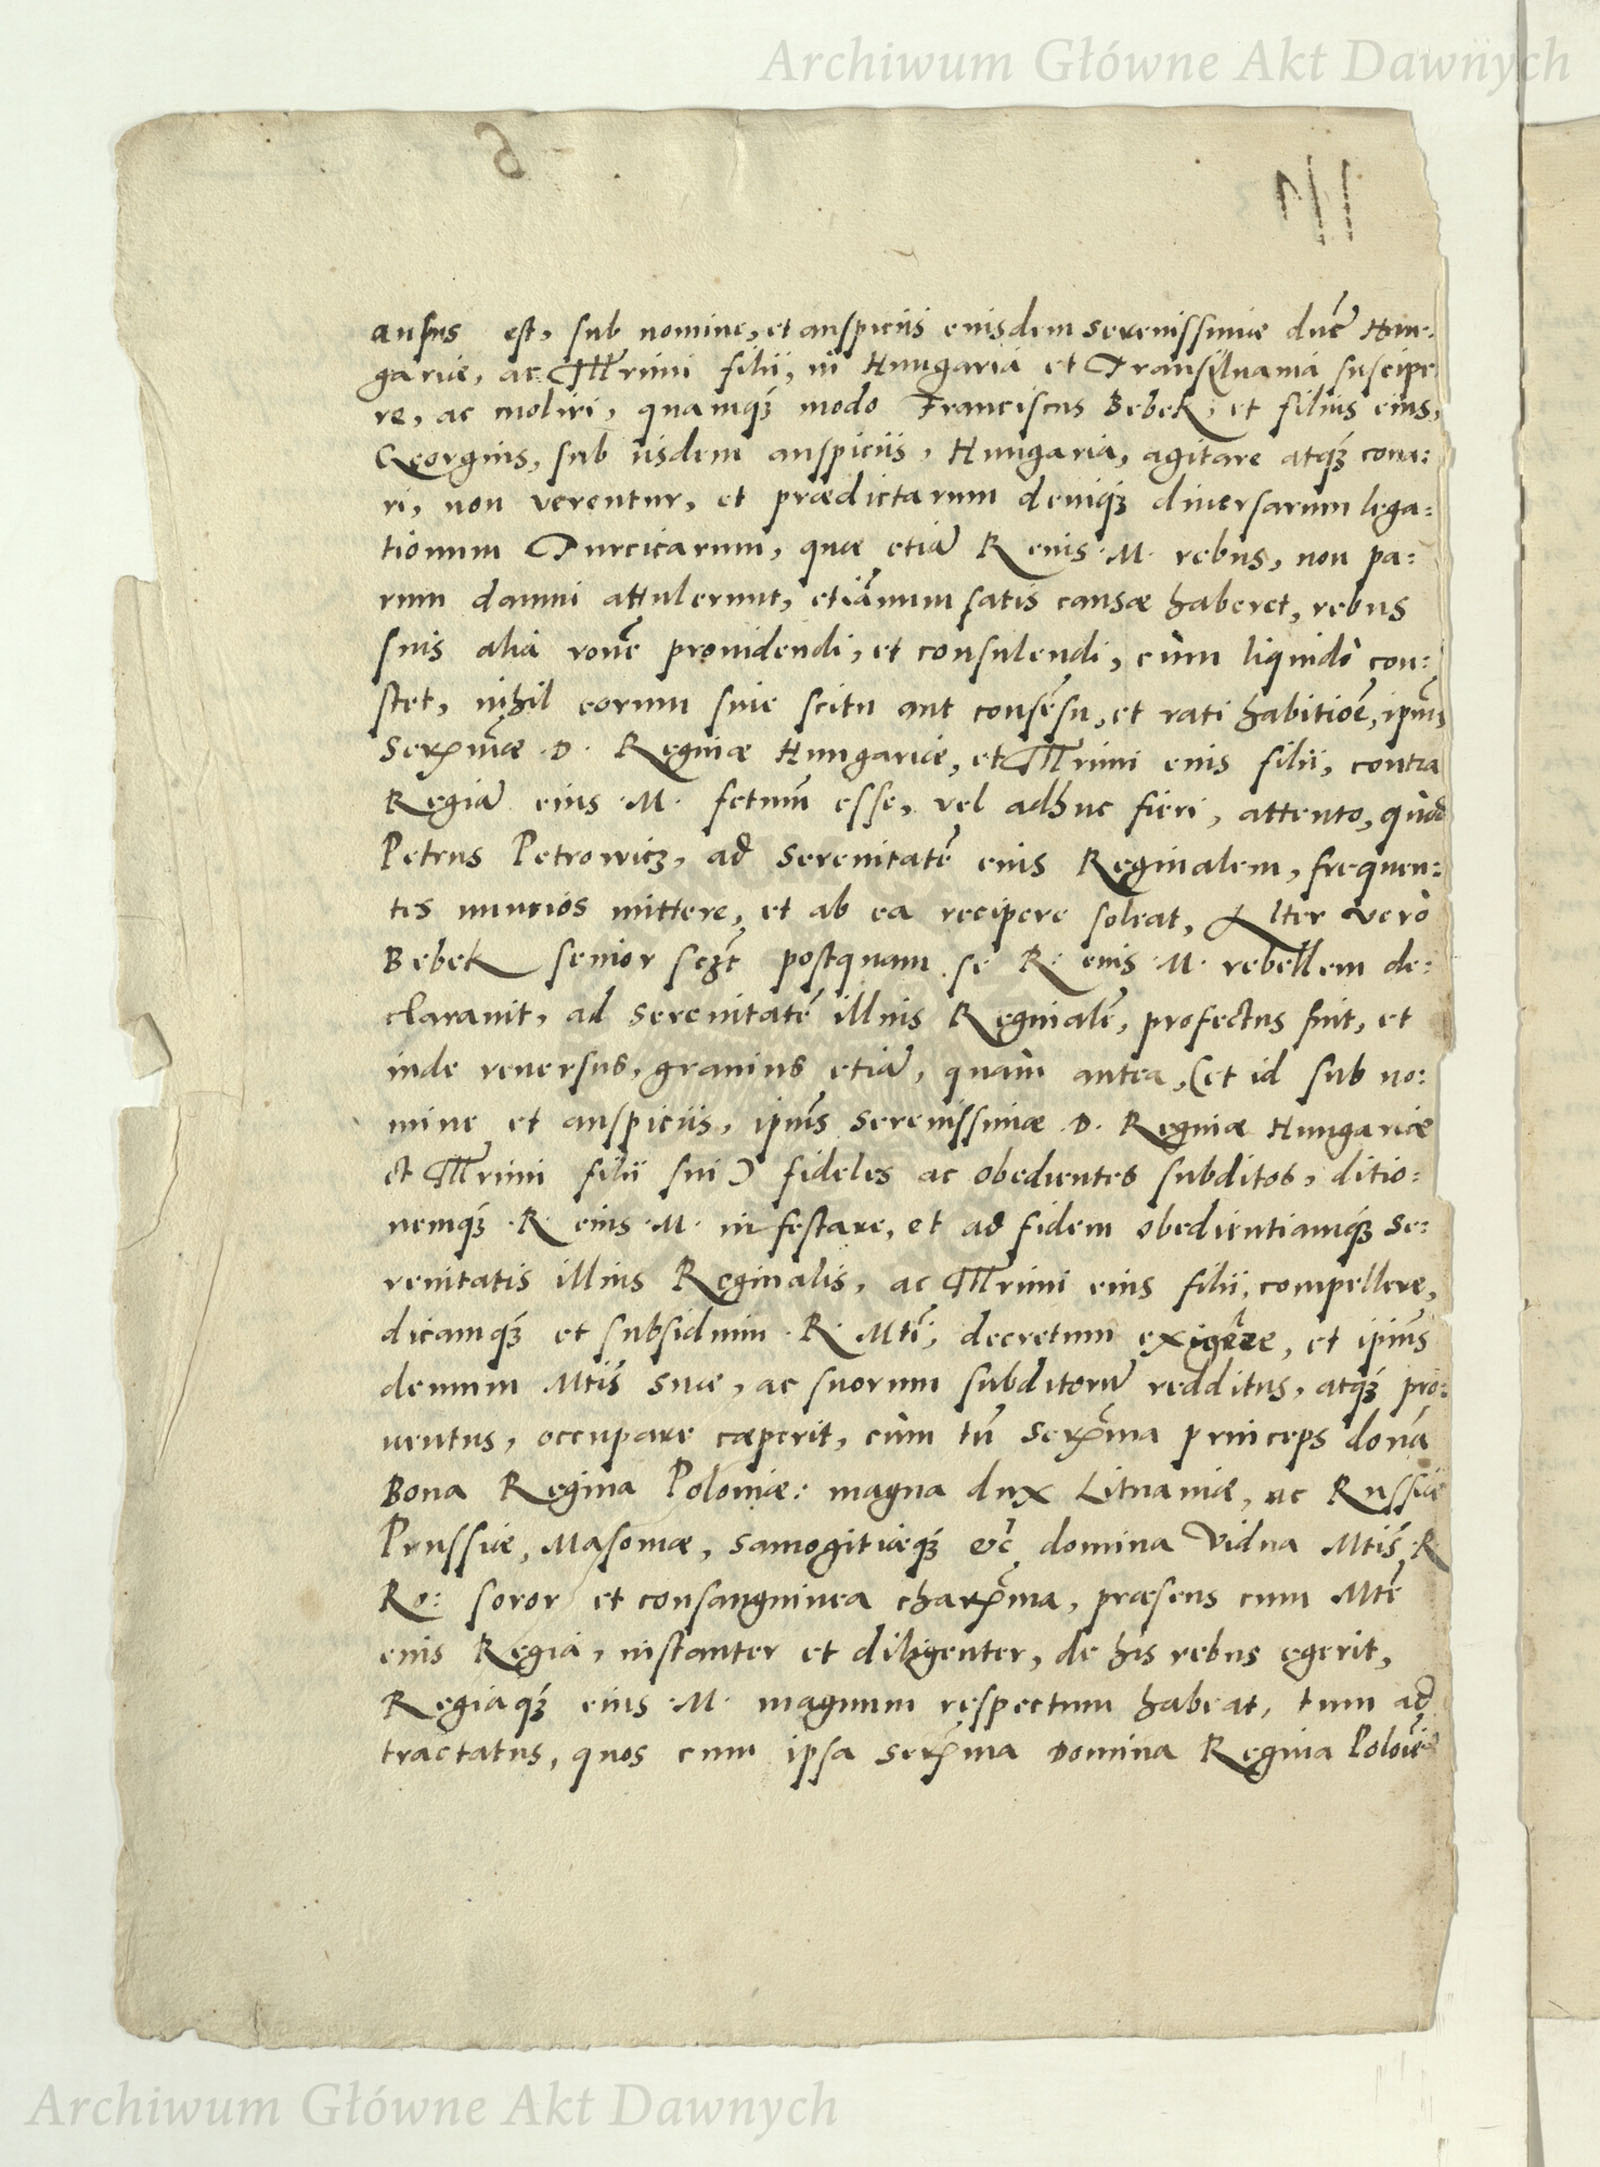 Archiwum Główne Akt Dawnych
6
ausus est, sub nomine, et auspiciis eiusdem serenissimae dnae Hun:
gariae, ac Illmi filii, in Hungariá et Transsiluaniá suscipe
re, ac moliri, quamqꝫ modo Franciscus Bebek, et filius eius,
Georgius, sub iisdem auspiciis, Hungaria, agitare atqꝫ cona:
ri, non verentur, et praedictarum deniqꝫ diuersarum lega:
tionum Turcicarum, quae etiā R eius .M. rebus, non pa:
rum damni attulerunt, etiānum satis causae haberet, rebus
suis aliá rone prouidendi, et consulendi, cùm liquidò con:
stet, nihil eorum sine scitu aut consēsu, et rati habitiōe, ipius
Serxmae .D. Reginae Hungariae, et Illrimi eius filii, contra
Regiā eius .M. fctum esse, vel adhuc fieri, attento, quòd
Petrus Petrowicz, ad Serenitatē eius Reginalem, frequen:
tes nuncios mittere, et ab ea recipere soleat, Alter verò
Bebek senior sczt postquam se R. eius .M. rebellem de:
clarauit, ad Serenitatē illius Reginalē, profectus fuit, et
inde reuersus, grauius etiā, quàm antea, (et id sub no:
mine et auspiciis, ipius Serenissimae .D. Reginae Hungariae
et Illrimi filii sui) fideles ac obedientes subditos, ditio:
nemqꝫ .R. eius .M. infestare, et ad fidem obedientiamqꝫ Se:
renitatis illius Reginalis, ac Illrimi eius filii, compellere,
dicamqꝫ et subsidium .R. Mti: decretum exigere, et ipius
demum Mtis suae, ac suorum subditorū redditus, atqꝫ pro:
uentus, occupare caeperit, cùm tū Serxma princeps dona
Bona Regina Poloniae: magna dux Lituaniae, ac Russiae
Prussiae, Masouiae, Samogitiaeqꝫ &c domina Vidua Mtis .R
Ro: soror et consanguinea charxma, praesens cum Mte
eius Regiá, instanter et diligenter, de his rebus egerit,
Regiaqꝫ eius .M. magnum respectum habeat, tum ad
tractatus, quos cum ipsa Serxma Domina Regina Poloniae
Archiwum Główne Akt Dawnych